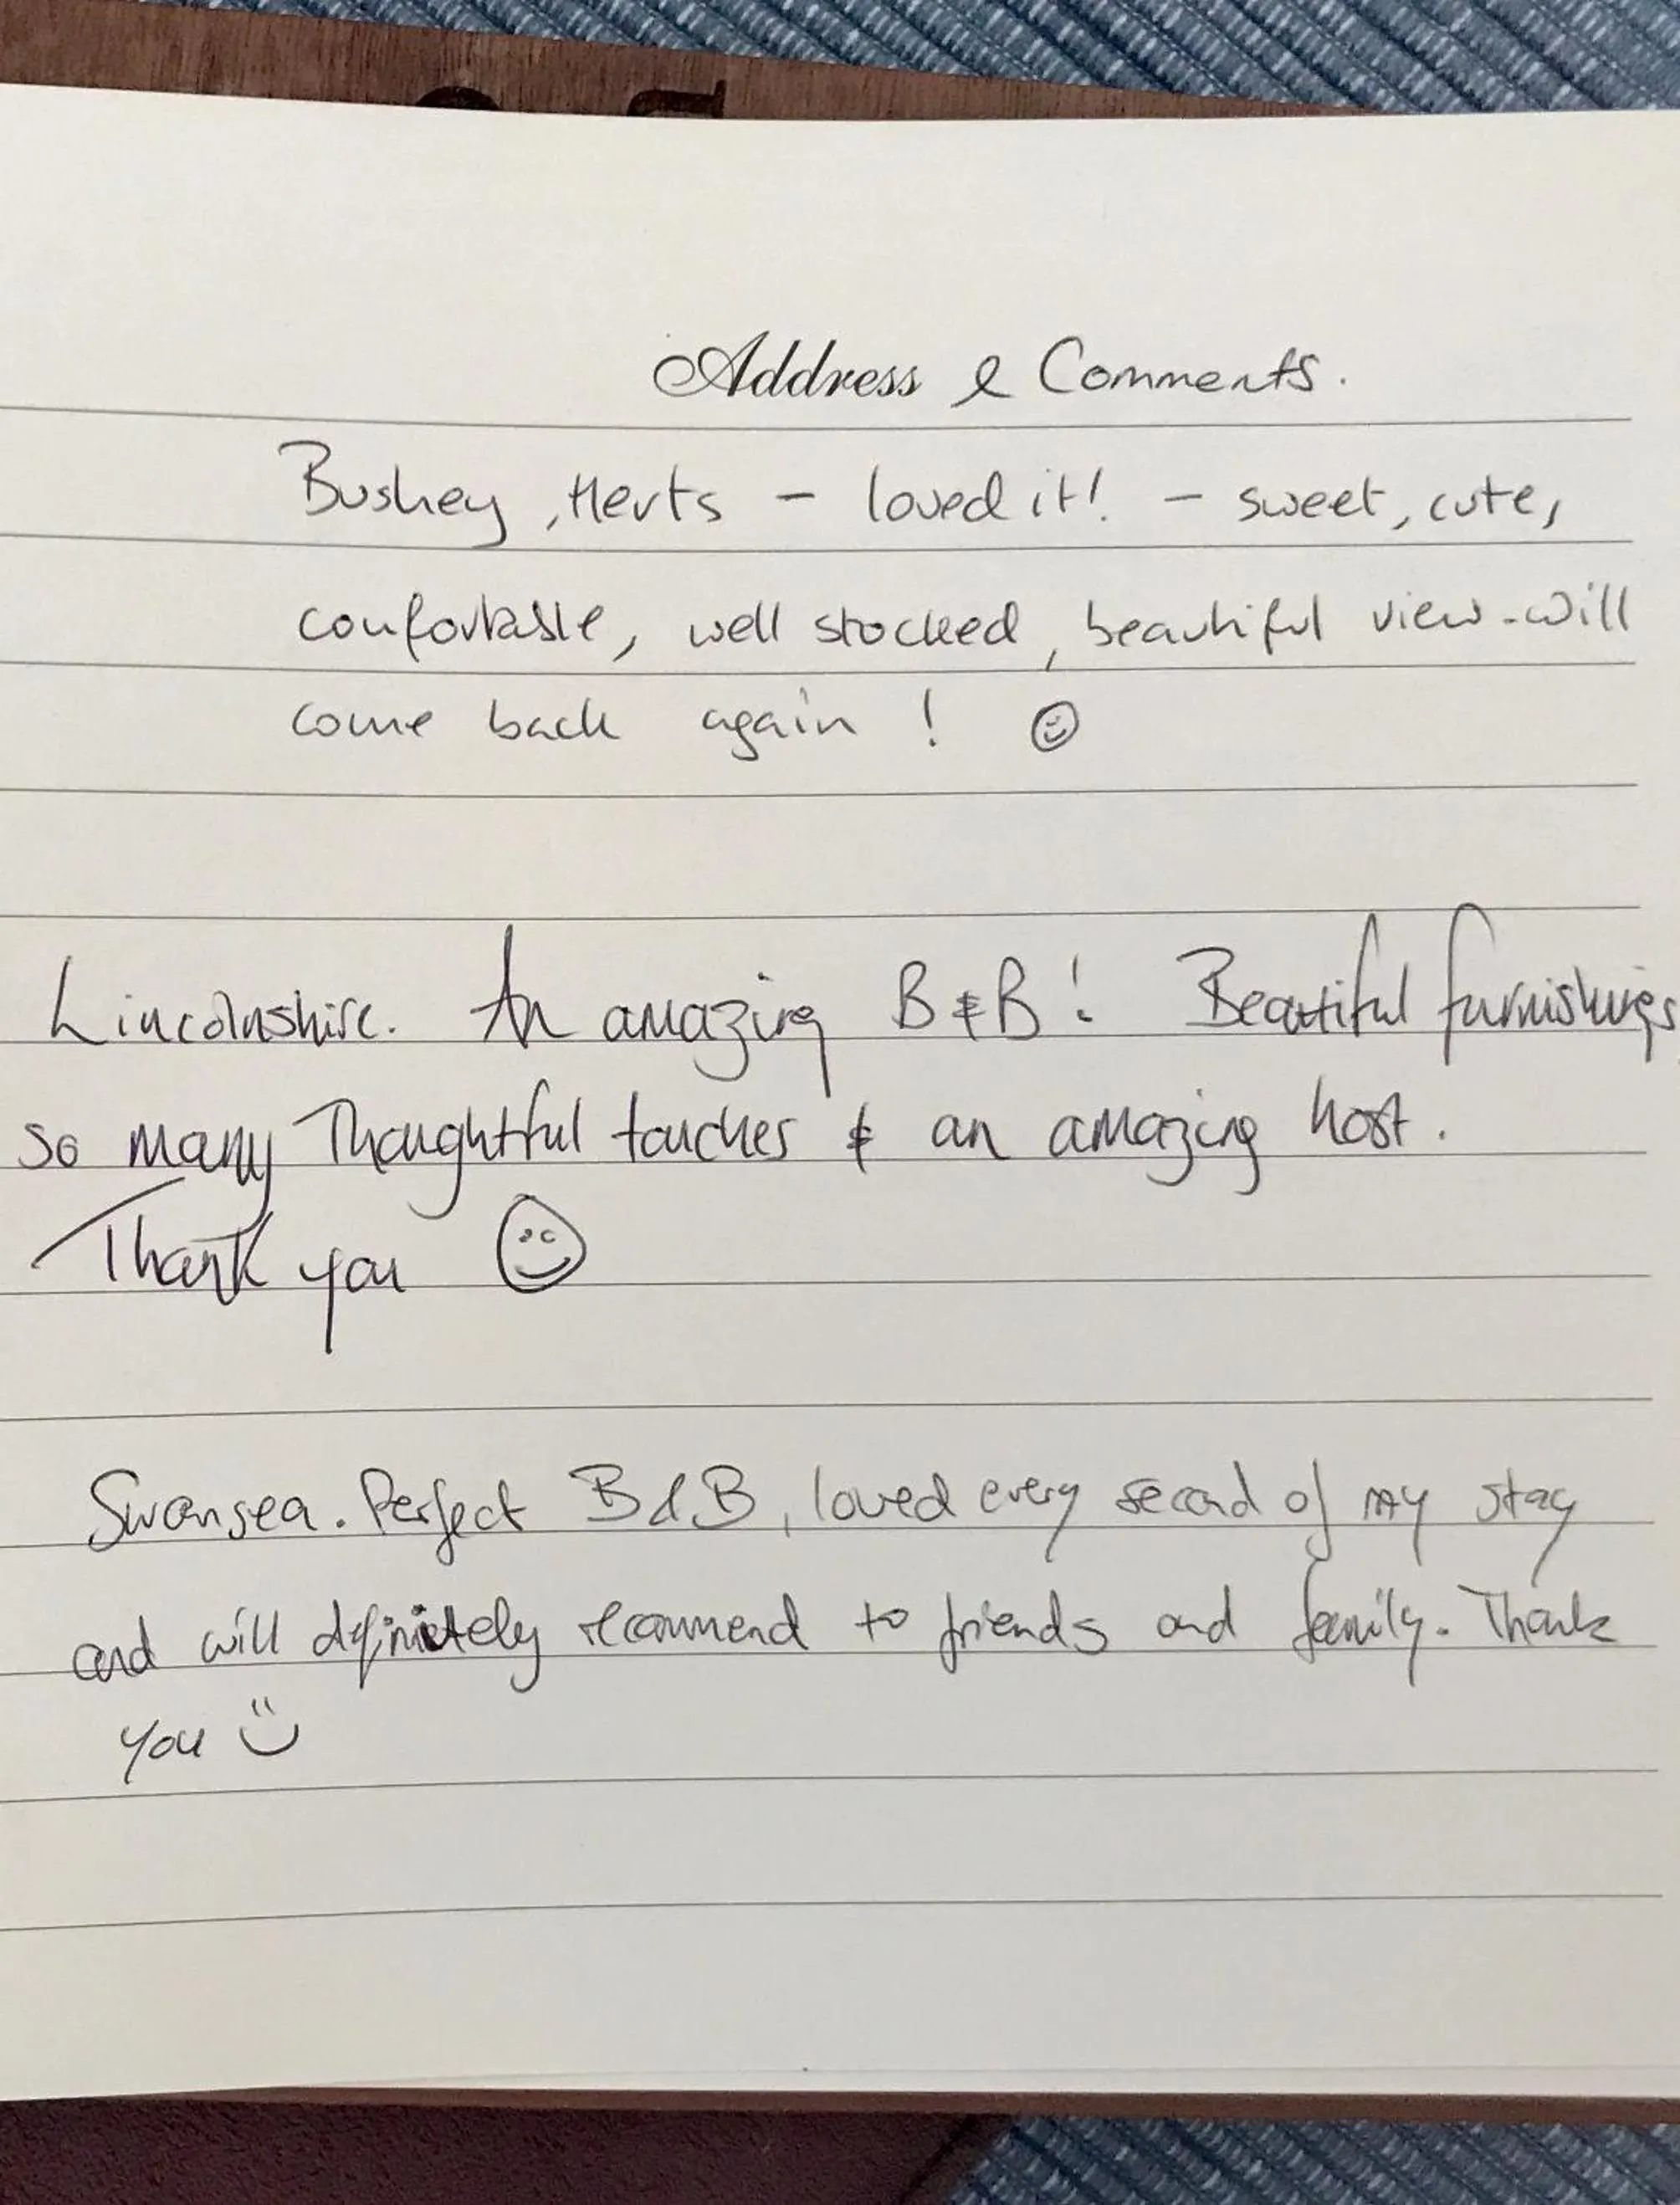 Address & Comments.
Bushey, Herts - loved it! - sweet, cute,
comfortable, well stocked, beautiful view - will
come back again! ☺
Lincolnshire. An amazing B & B! Beautiful furnishings
so many Thoughtful touches & an amazing host.
Thank you ☺
Swansea. Perfect B & B, loved every second of my stay
and will definitely recommend to friends and family. Thank
you ☺